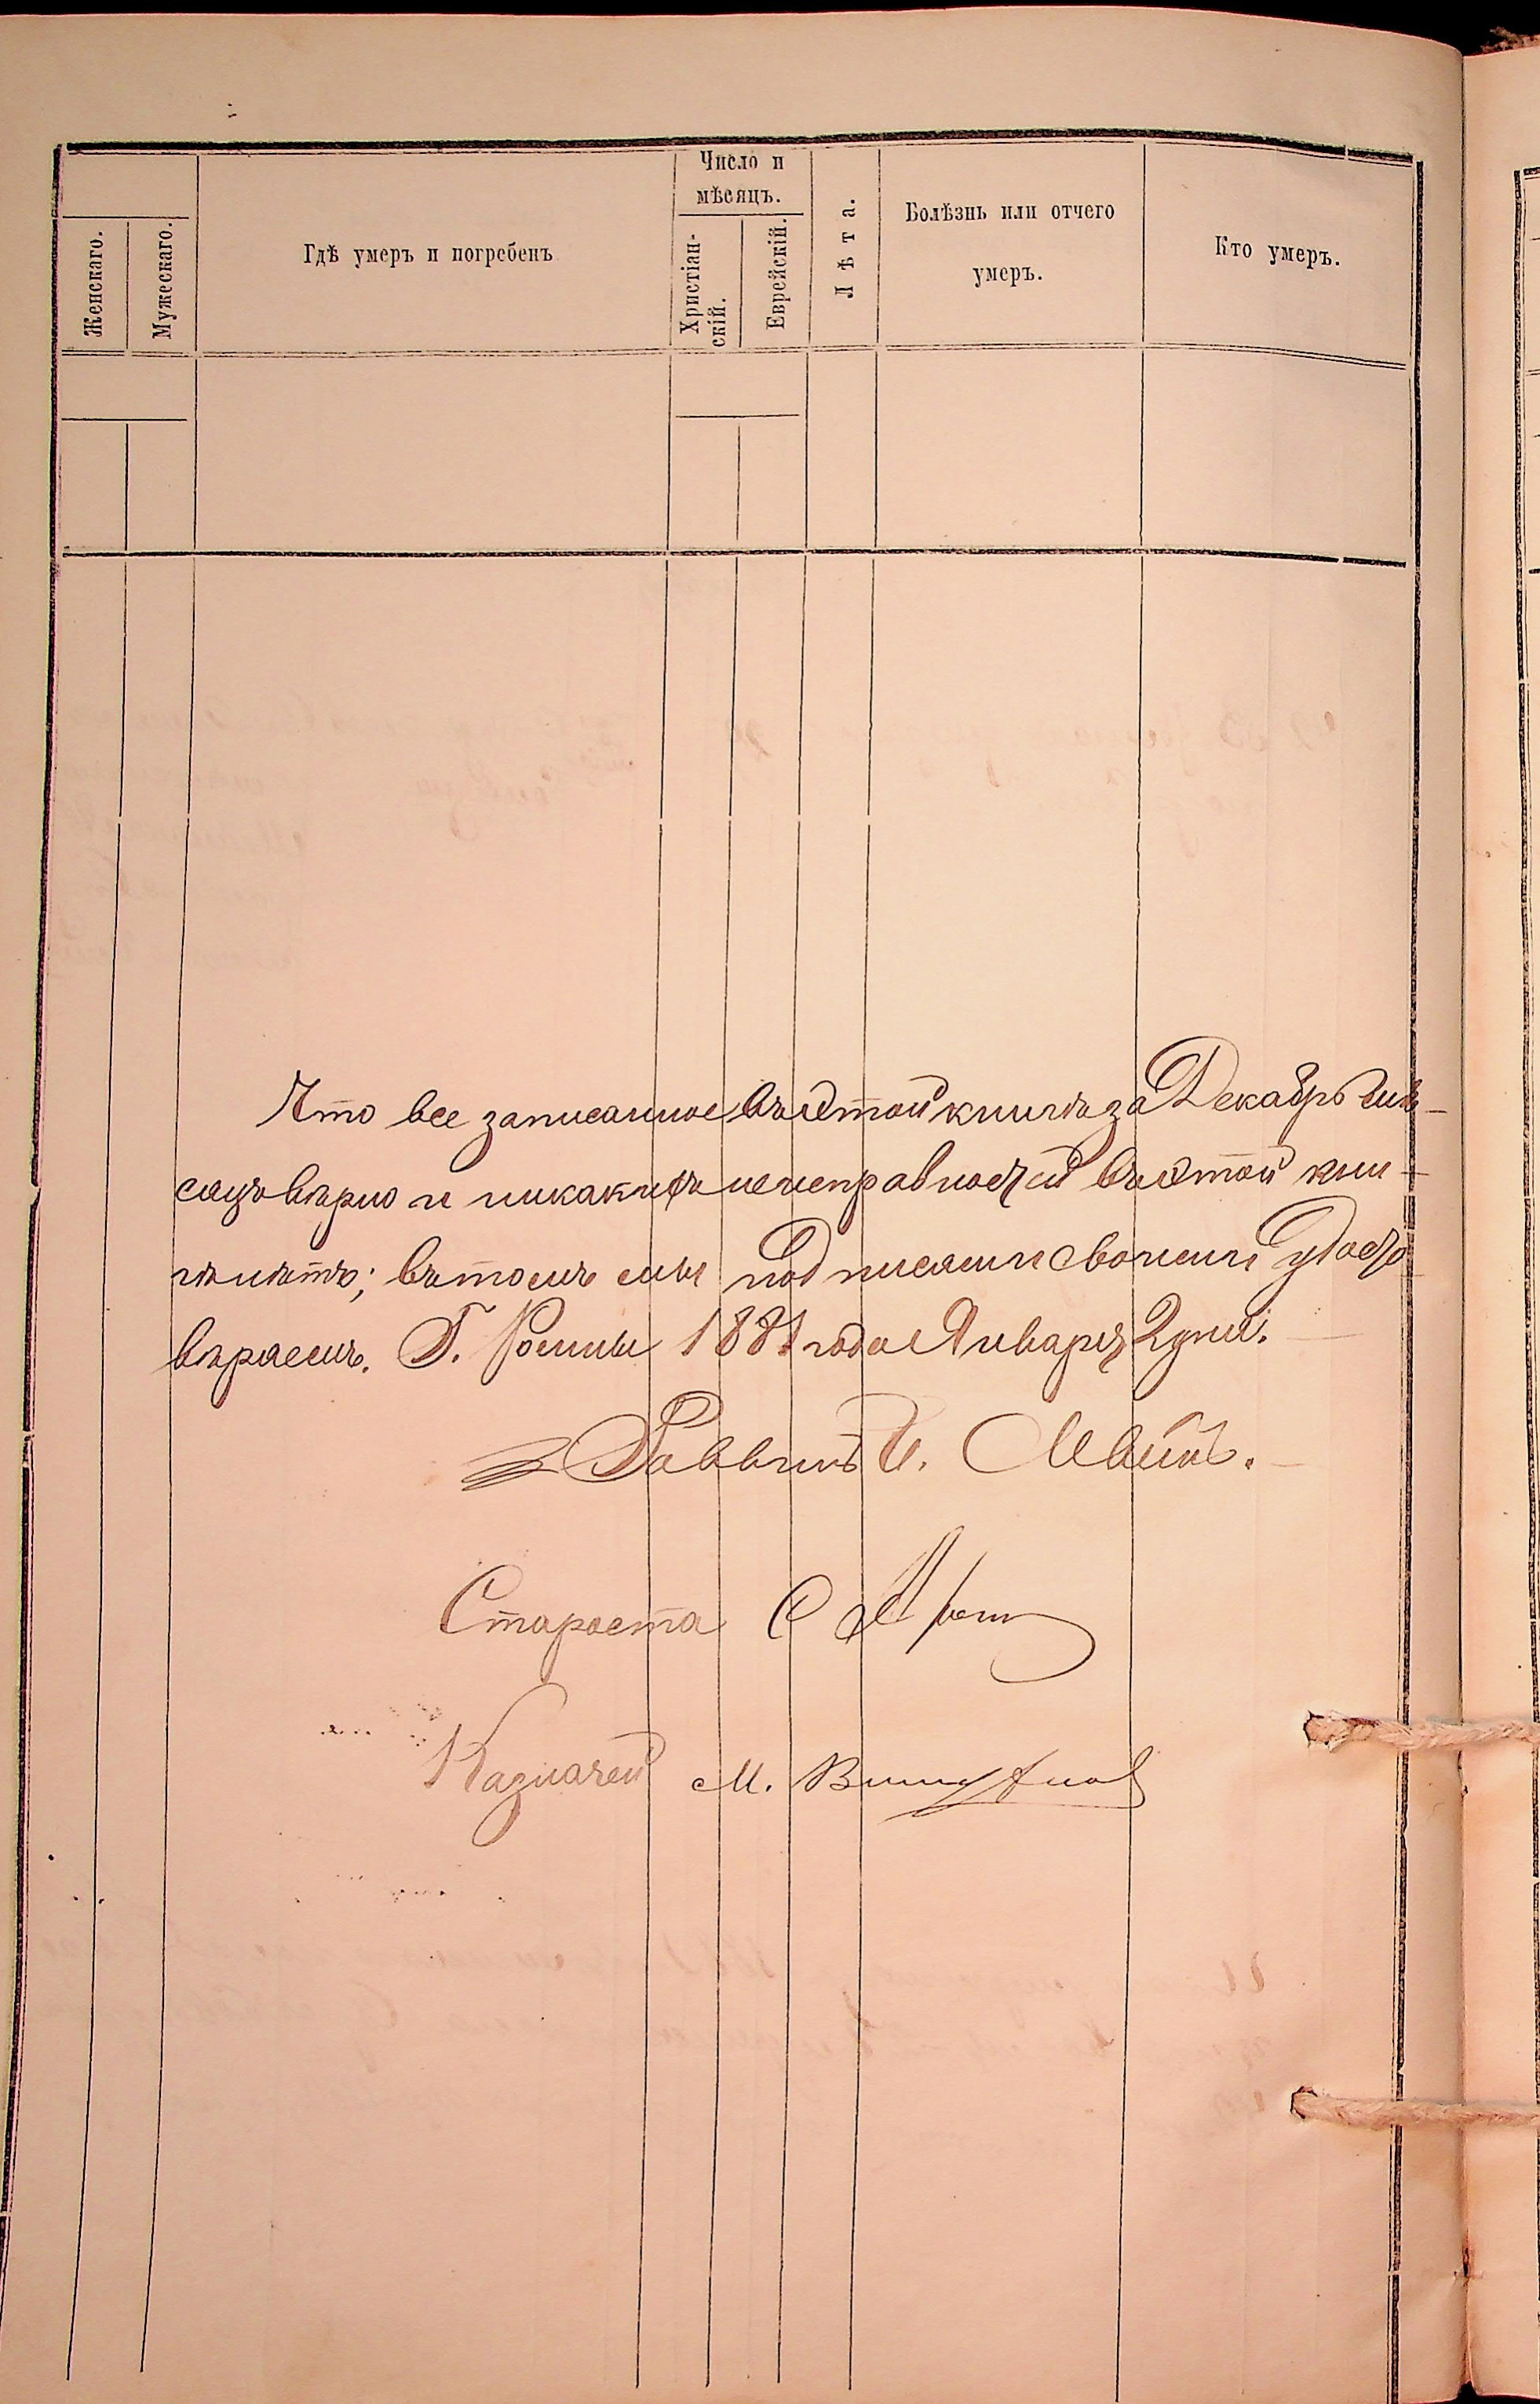 Женскаго.
Мужескаго.
Гдѣ умеръ и погребенъ
Число и
мѣсяцъ.
Христіан-
скій.
Еврейскій.
Лѣта.
Болѣзнь или отчего
умеръ.
Кто умеръ.
Что все записанное въ этой книгѣ за Декабрь мѣ-
сяцъ вѣрно и никакихъ неисправностей въ этой кни-
гѣ нѣтъ; въ томъ мы подписами своими удосто
вѣраемъ. Г. Ромны 1881 года Января 2 дня.
Раввинъ И. Левинъ.
Староста С
Казначей М.